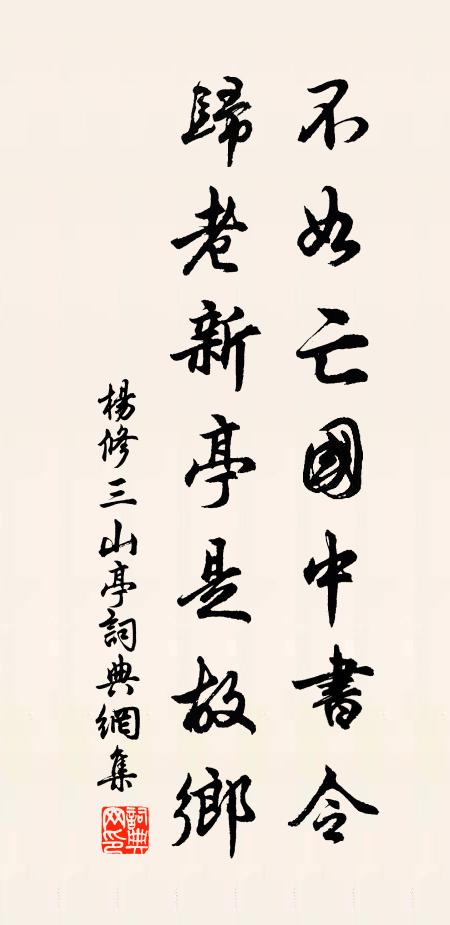 不如亡國中書令
歸老新亭是故鄉
楊修三山亭詞典網集
詞典網印